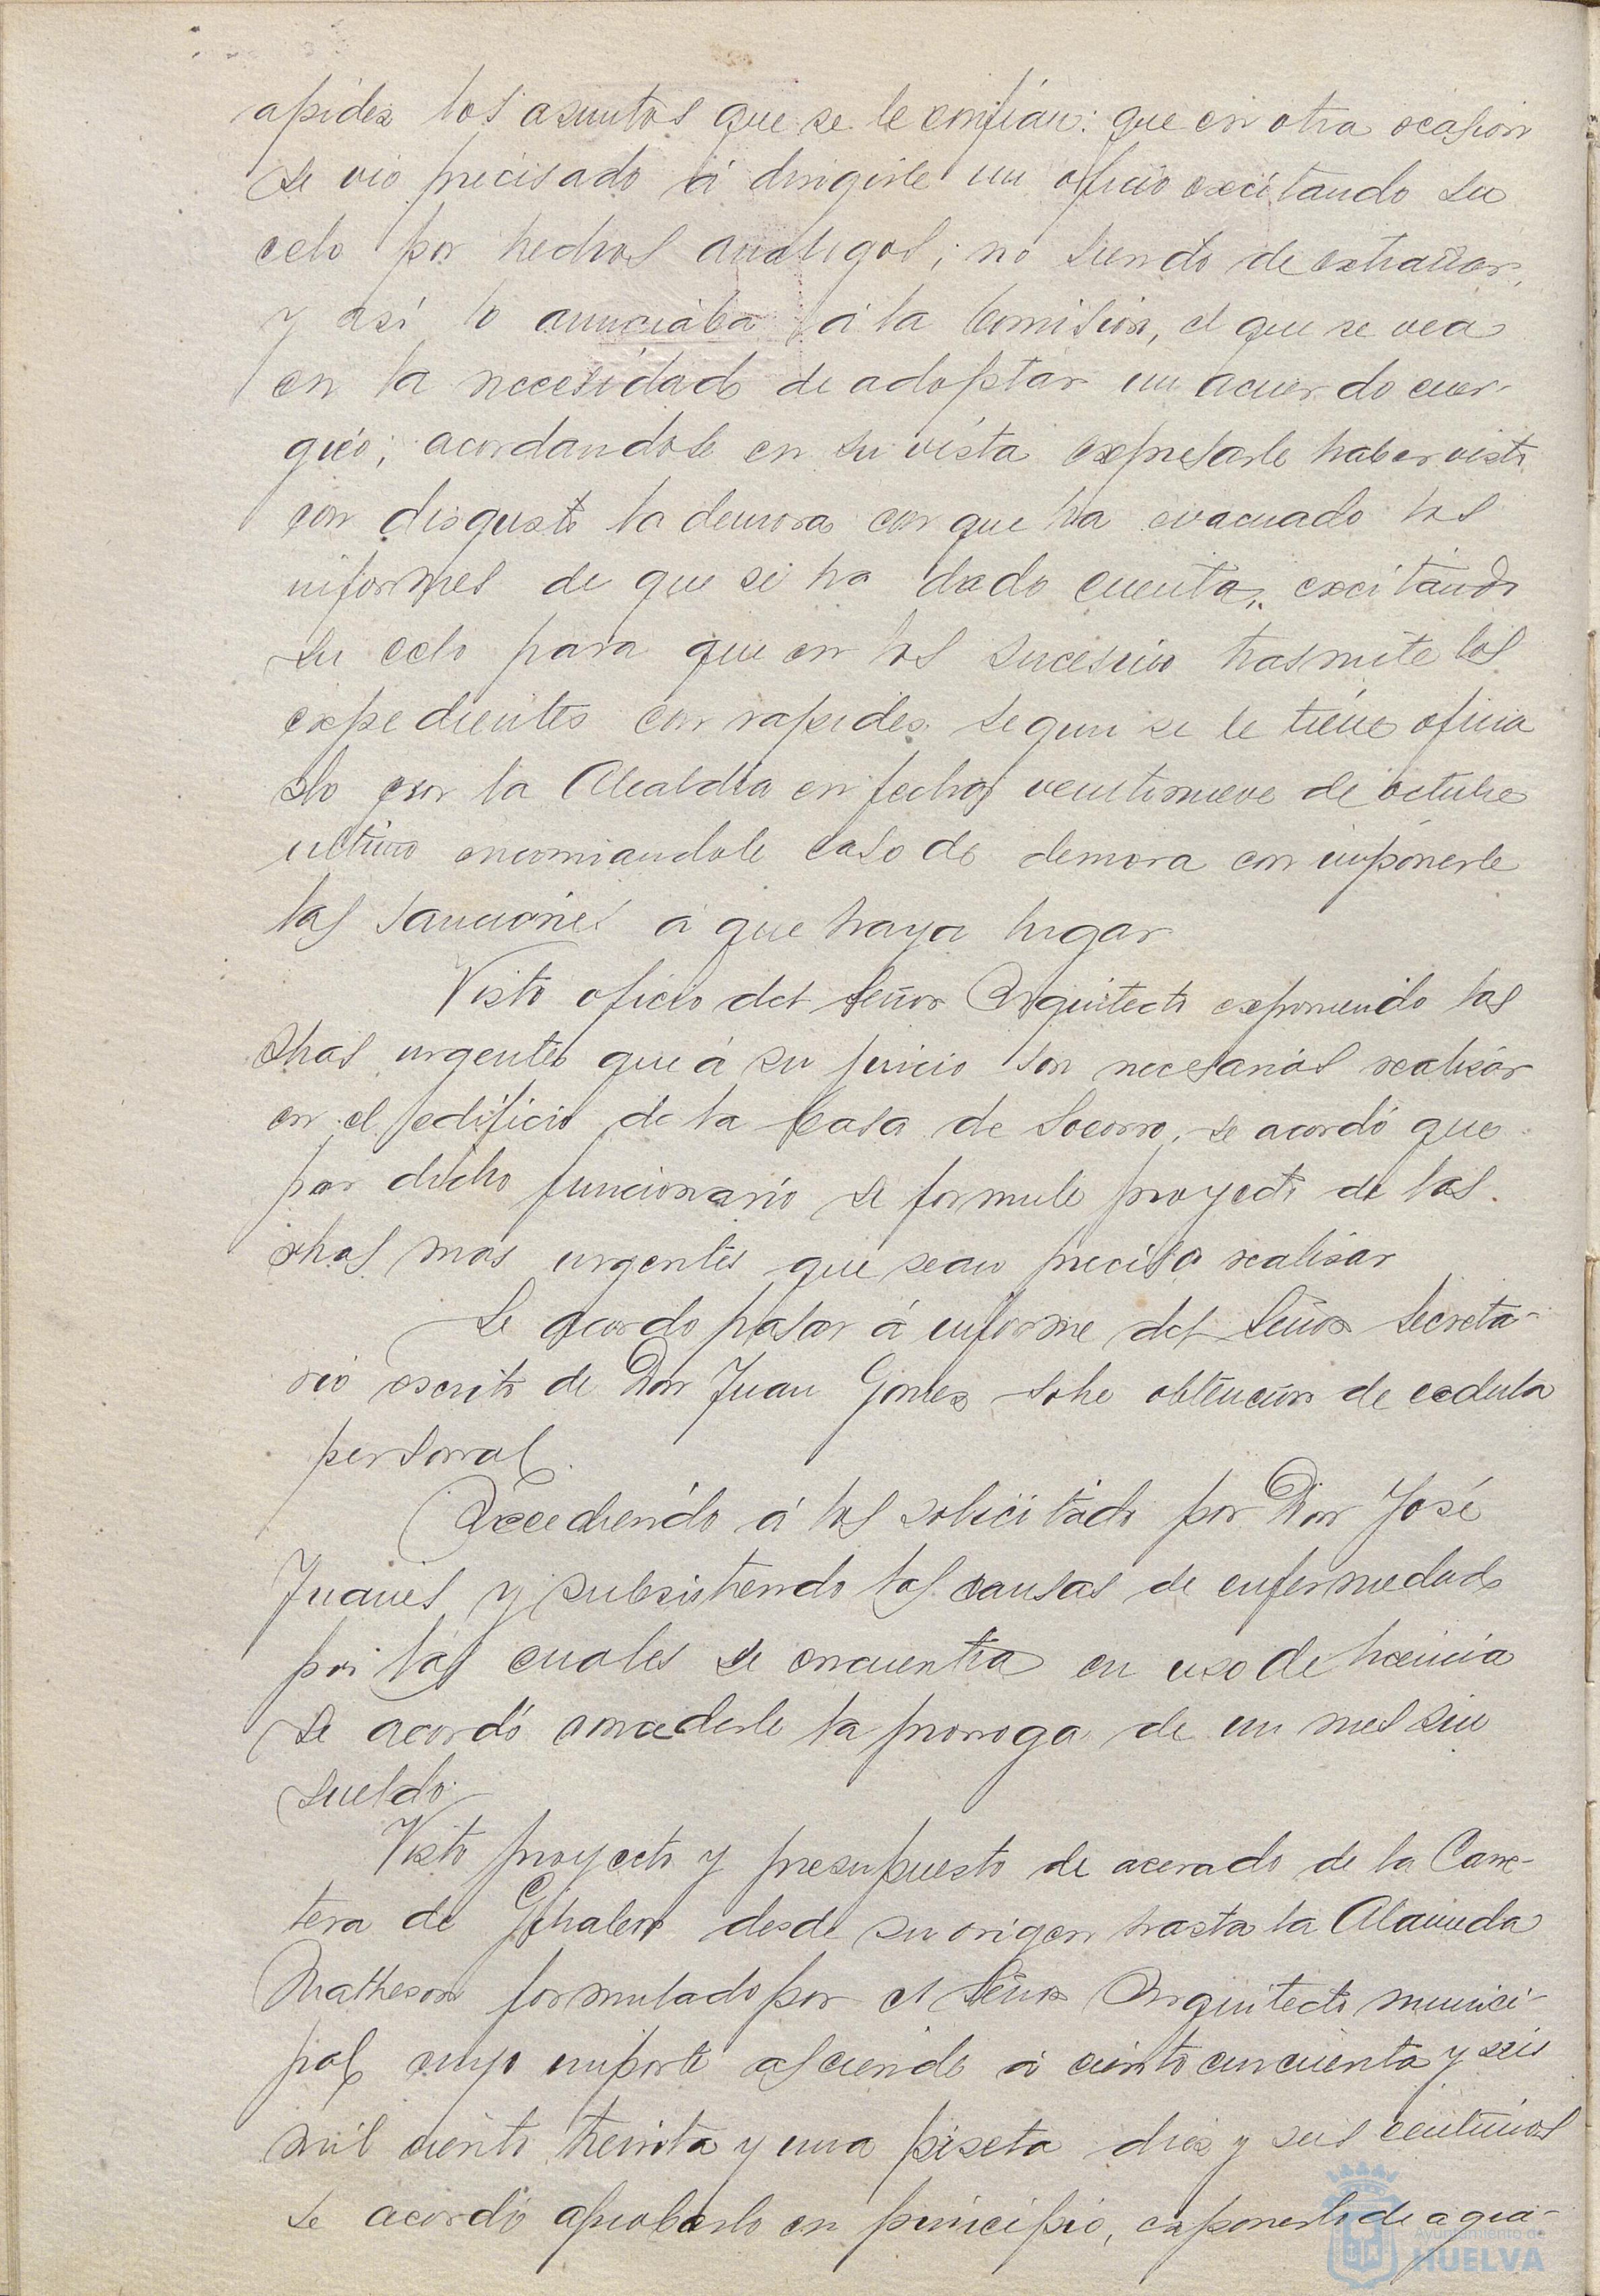 apidez los asuntos que se le confian: que en otra ocasion
se vio precisado á dirigirle un oficio excitando su
celo por hechos analogos; no siendo de extrañar,
y así lo anunciaba á la Comision, el que se vea
en la necesidad de adoptar un acuerdo ener-
gico; acordandose en su vista expresarle haber visto
con disgusto la demora con que ha evacuado los
informes de que se ha dado cuenta, excitando
su celo para que en los sucesivo trasmite los
expedientes con rapidez segun se le tiene oficia
do por la Alcaldia en fecha veintinueve de octubre
ultimo conminandole caso de demora con imponerle
las sanciones á que haya lugar
Visto oficio del Señor Arquitecto exponiendo las
obras urgentes que á su juicio son necesarias realizar
en el edificio de la Casa de Socorro, se acordó que
por dicho funcionario se formule proyecto de las
obras mas urgentes que sean preciso realizar
Se acordo pasar á informe del Señor Secreta-
rio escrito de Don Juan Gomez sobre obtencion de cedula
personal.
Accediendo á los solicitado por Don José
Juanes y subsistiendo las causas de enfermedad
por las cuales se encuentra en uso de licencia
se acordó concederle la prorroga de un mes sin
sueldo.
Visto proyecto y presupuesto de acerado de la Carre-
tera de Gibraleon desde su origen hasta la Alameda
Matheson formulado por el Señor Arquitecto munici-
pal cuyo importe asciende á ciento cincuenta y seis
mil ciento treinta y una peseta diez y seis centimos
se acordó aprobarlo en principio, exponerlo de agra-
Ayuntamiento de
HUELVA